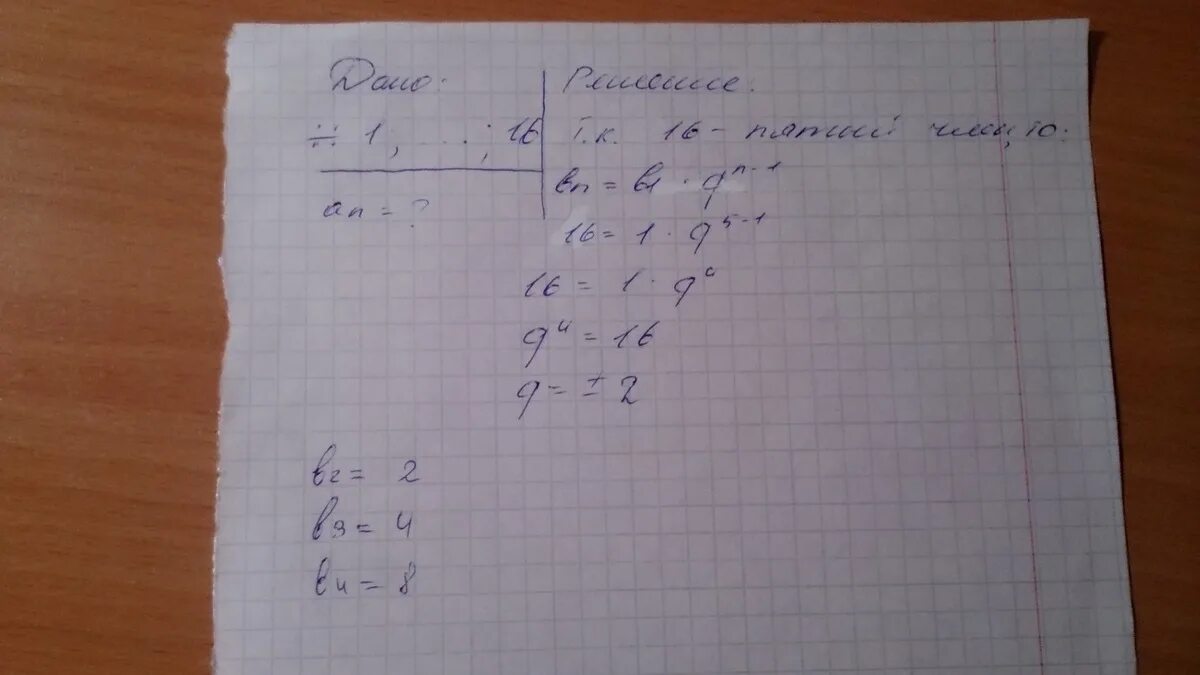 Дано:
÷ 1; ....; 16
an = ?
Решение:
Т.к. 16 - пятый член, то.
bn = b1 · q^n-1
16 = 1 · q^5-1
16 = 1 · q^4
q^4 = 16
q = ± 2
b2 = 2
b3 = 4
b4 = 8